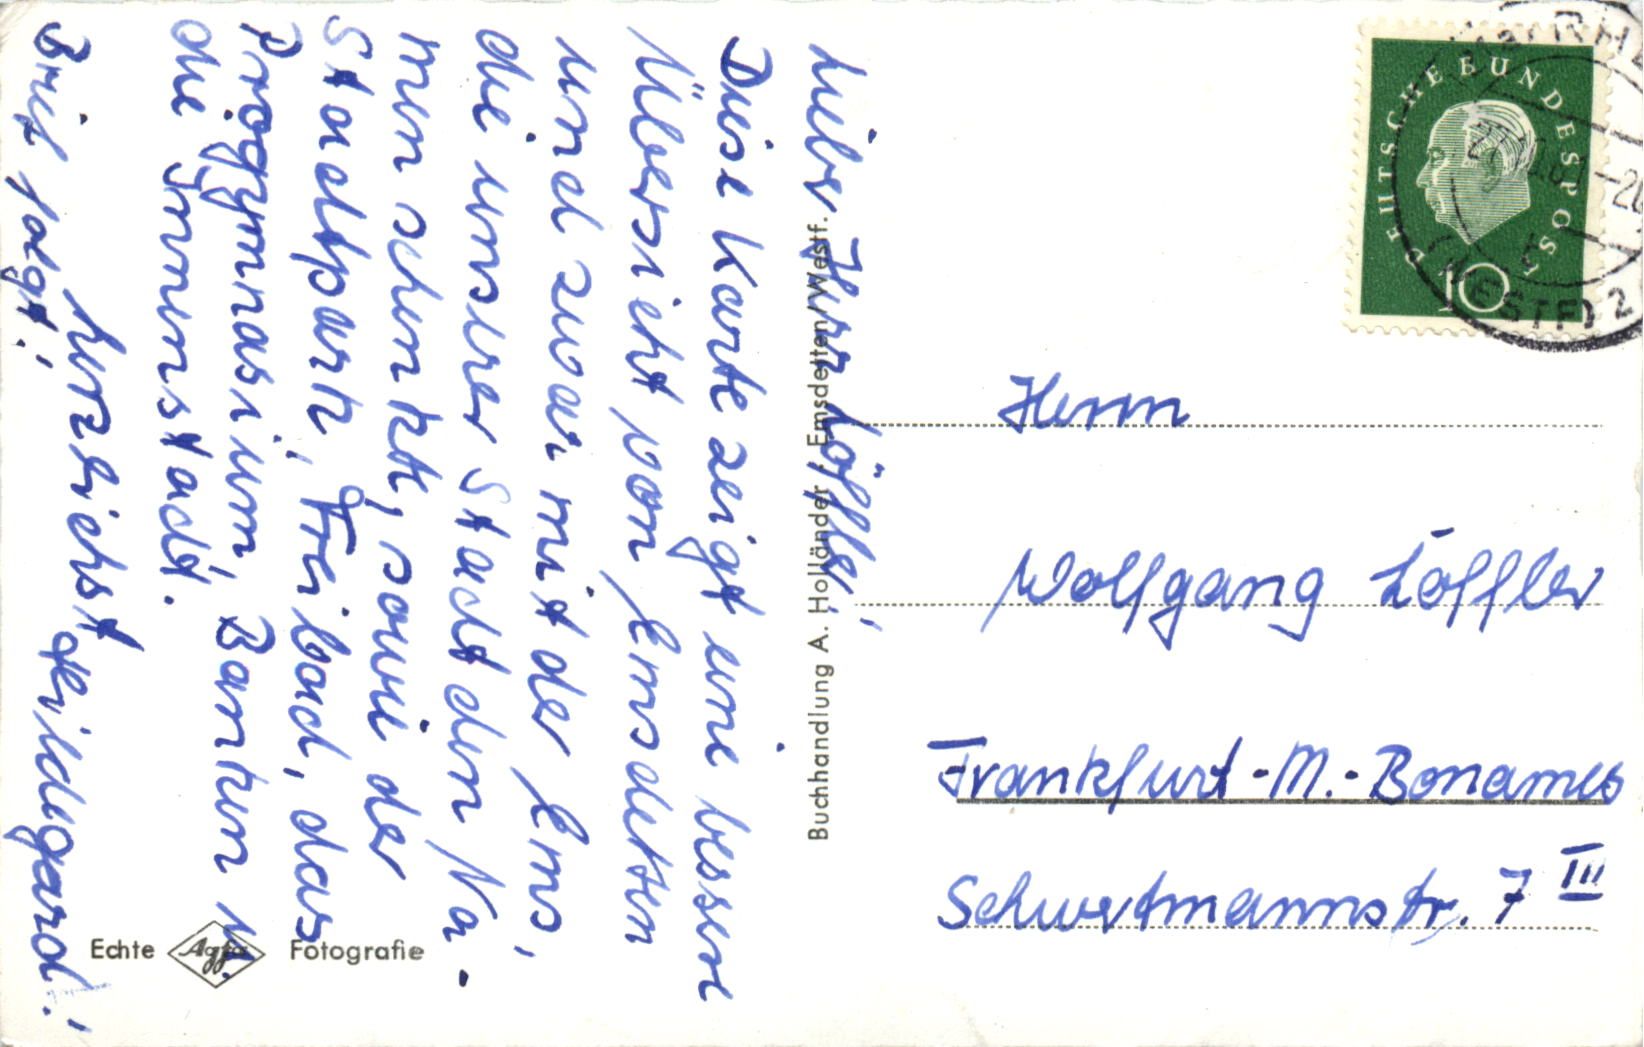 Lieber Herr Löffler,
Diese Karte zeigt eine bessere
Übersicht von Emsdetten
und zwar mit der Ems,
die unserer Stadt den Na-
men schenkt, sowie der
Stadtpark, Freibad, das
Progymnasium, Banken u.
die Innenstadt.
herzlichst Hildegard!
Brief folgt!
Buchhandlung A. Holländer, Emsdetten/Westf.
Echte Agfa Fotografie
DEUTSCHE BUNDESPOST
10
(WESTF) 2
Herrn
Wolfgang Löffler
Frankfurt-M.-Bonames
Schwertmannstr. 7 III